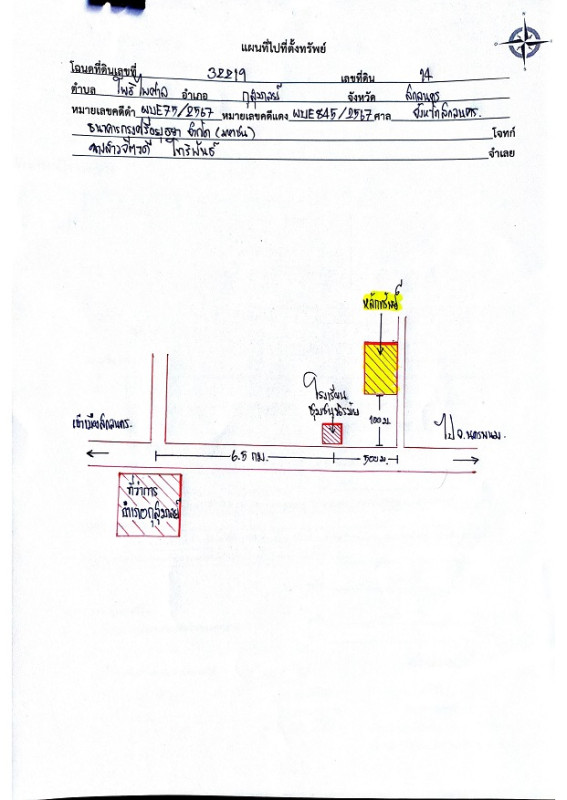 แผนที่ไปที่ตั้งทรัพย์
โฉนดที่ดินเลขที่ 32219 เลขที่ดิน 14
ตำบล โพธิไพศาล อำเภอ กุสุมาลย์ จังหวัด สกลนคร
หมายเลขคดีดำ ผบE75/2567 หมายเลขคดีแดง ผบE845/2567 ศาล จังหวัดสกลนคร.
ธนาคารกรุงศรีอยุธยา จำกัด (มหาชน) โจทก์
จำเลย
หลักทรัพย์
โรงเรียน
100 ม.
ไป จ.นครพนม.
6.5 กม.
500 ม.
ที่ว่าการ
อำเภอกุสุมาลย์